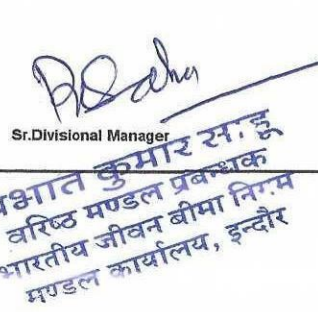 Sr.Divisional Manager
कुमार साहू
वरिष्ठ मण्डल प्रबन्धक
भारतीय जीवन बीमा निगम
मण्डल कार्यालय, इन्दौर